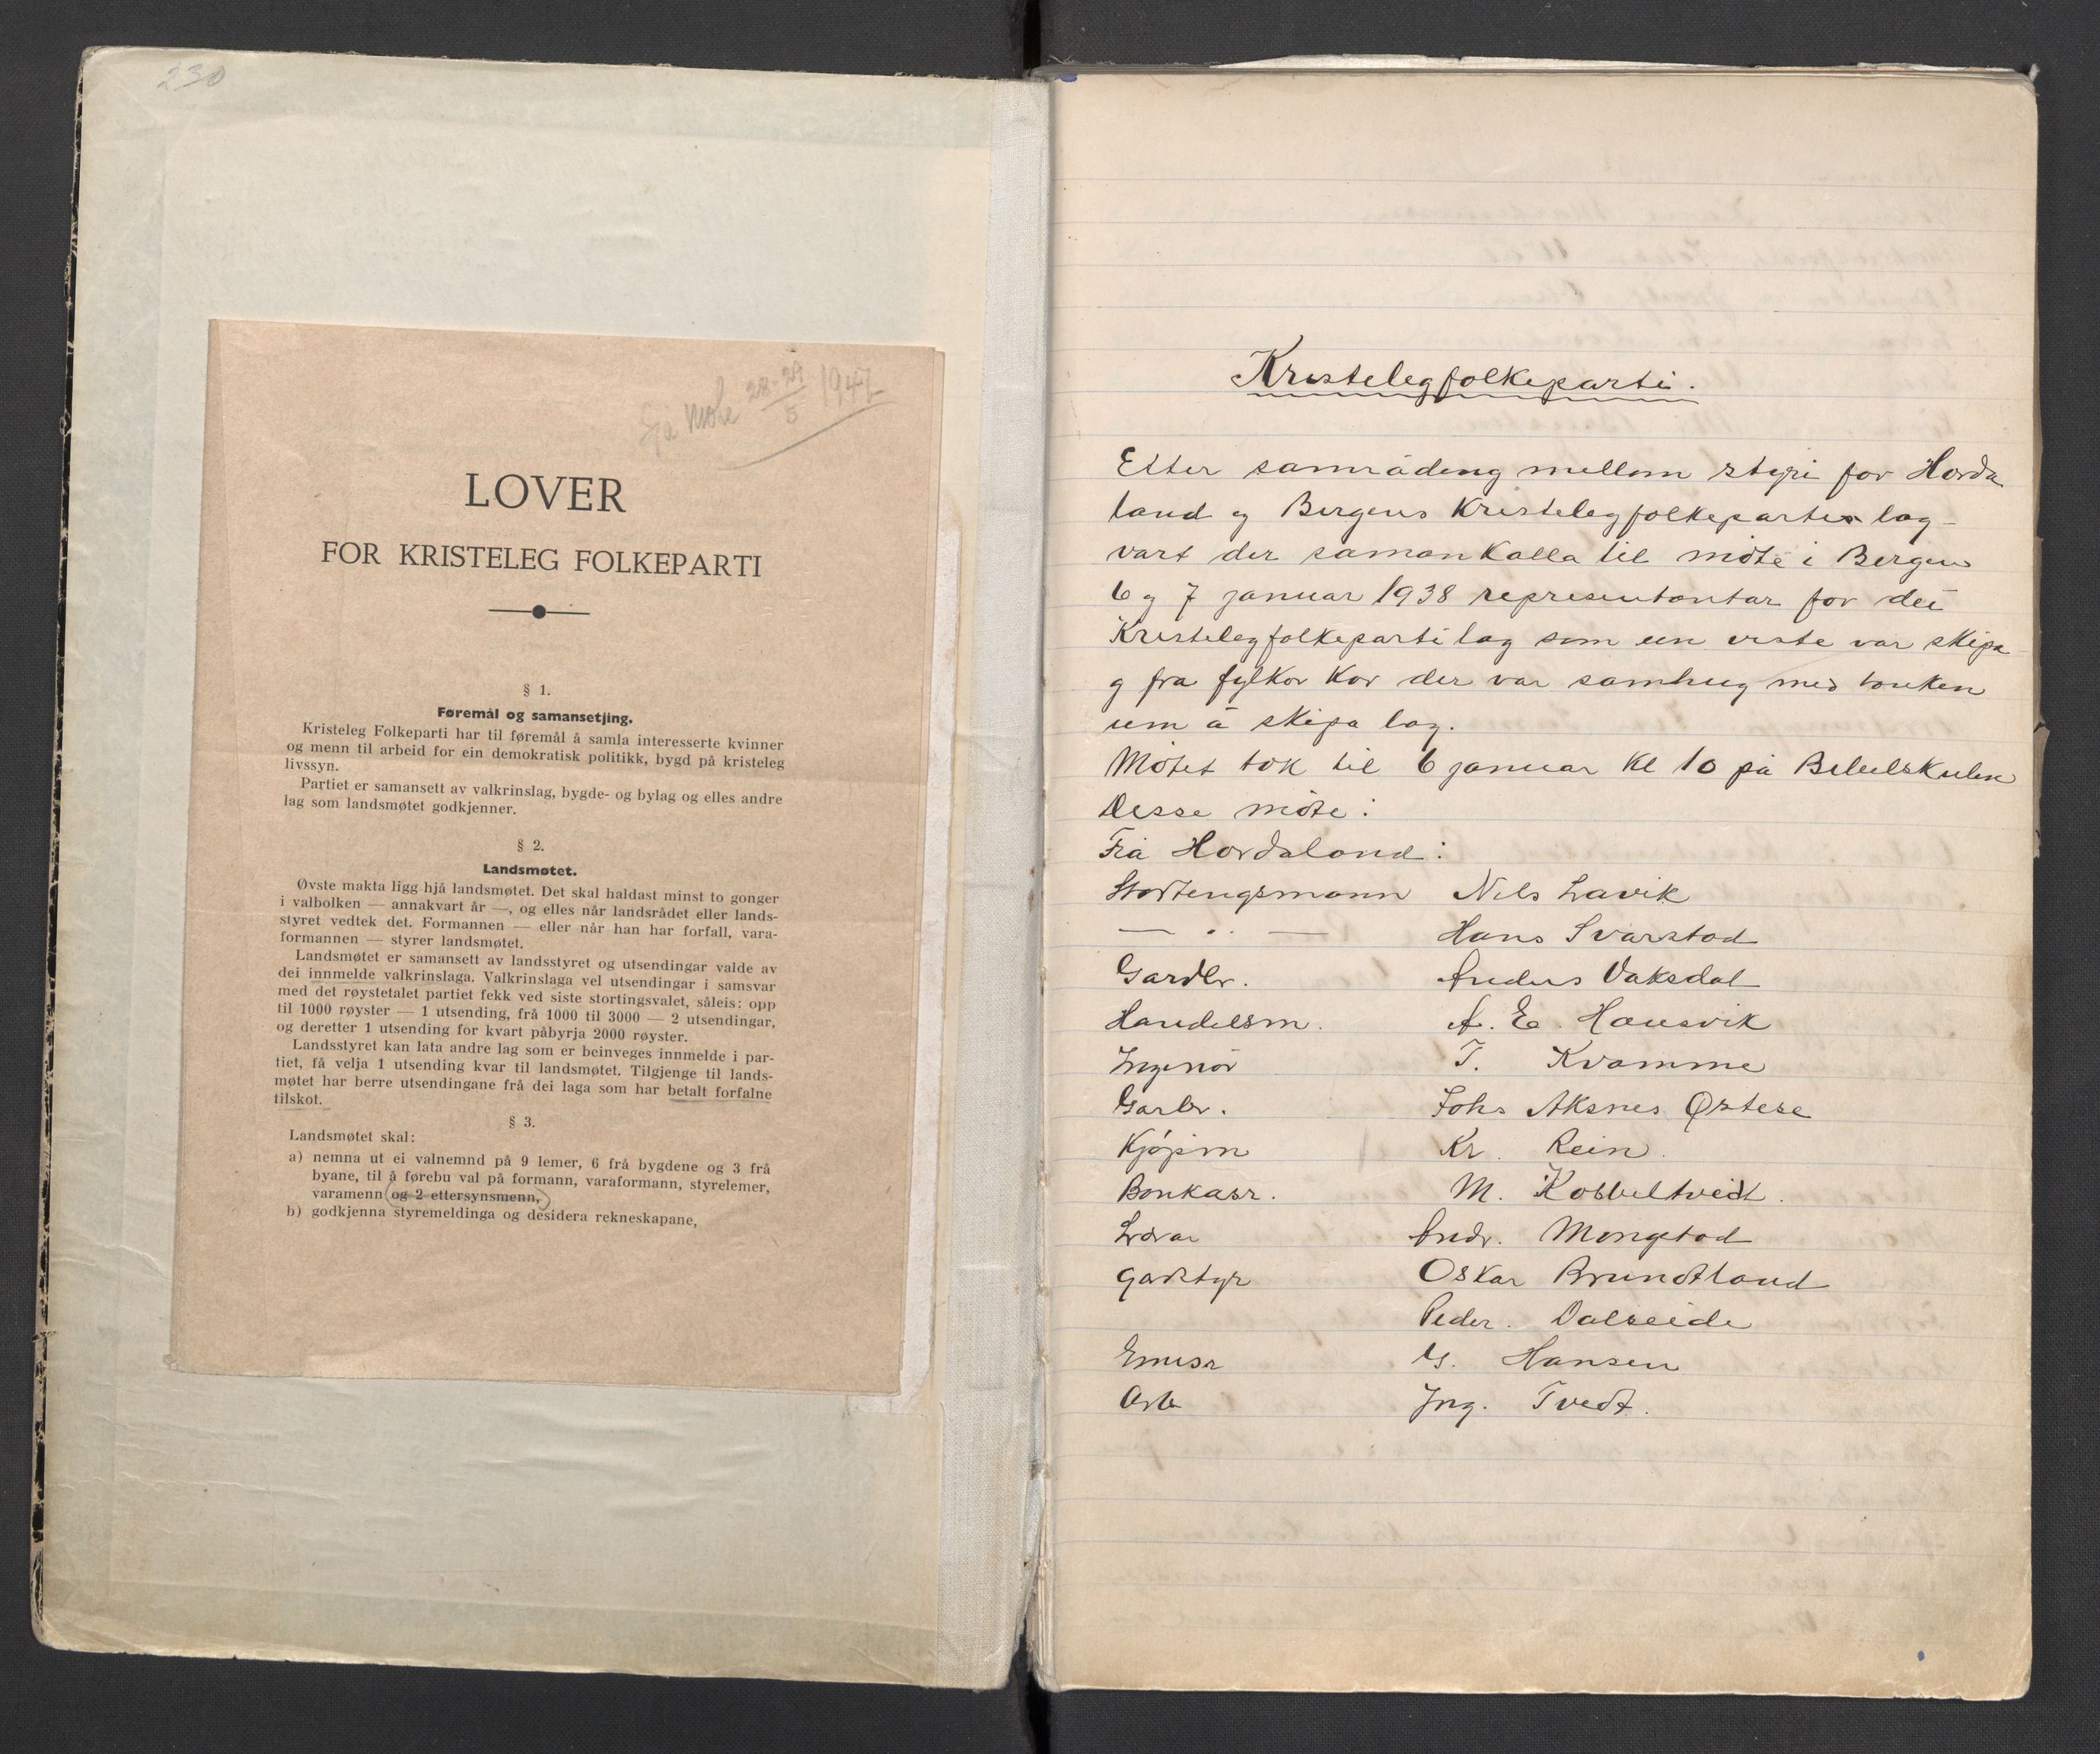 230
møte 28-29/5 1947
LOVER
FOR KRISTELEG FOLKEPARTI
§ 1.
Føremål og samansetjing.
Kristeleg Folkeparti har til føremål å samla interesserte kvinner
og menn til arbeid for ein demokratisk politikk, bygd på kristeleg
livssyn.
Partiet er samansett av valkrinslag, bygde- og bylag og elles andre
lag som landsmøtet godkjenner.
§ 2.
Landsmøtet.
Øvste makta ligg hjå landsmøtet. Det skal haldast minst to gonger
i valbolken — annakvart år —, og elles når landsrådet eller lands-
styret vedtek det. Formannen — eller når han har forfall, vara-
formannen — styrer landsmøtet.
Landsmøtet er samansett av landsstyret og utsendingar valde av
dei innmelde valkrinslaga. Valkrinslaga vel utsendingar i samsvar
med det røystetalet partiet fekk ved siste stortingsvalet, såleis: opp
til 1000 røyster — 1 utsending, frå 1000 til 3000 — 2 utsendingar,
og deretter 1 utsending for kvart påbyrja 2000 røyster.
Landsstyret kan lata andre lag som er beinveges innmelde i par-
tiet, få velja 1 utsending kvar til landsmøtet. Tilgjenge til lands-
møtet har berre utsendingane frå dei laga som har betalt forfalne
tilskot.
§ 3.
Landsmøtet skal:
a) nemna ut ei valnemnd på 9 lemer, 6 frå bygdene og 3 frå
byane, til å førebu val på formann, varaformann, styrelemer,
varamenn (og 2 ettersynsmenn,)
b) godkjenna styremeldinga og desidera rekneskapane,
Kristelegfolkeparti.
Etter samråding mellom styri for Horda
land og Bergens Kristelegfolkepartis lag
vart der samankalla til møte i Bergen
6 og 7 januar 1938 representantar for dei
Kristelegfolkeparti lag som ein visste var skipa
og fra fylker kor der var samhug med tanken
um å skipa lag.
Møtet tok til 6 januar kl 10 på Bibelskulen
Desse møte:
Frå Hordaland:
Stortingsmann Nils Lavik
— " — Hans Svarstad
Gardbr. Anders Vaksdal
Handelsm. A. E. Hausvik
Ingeniør T. Kvamme
Garbr. Johs Aksnes Østese
Kjøpm Kr. Rein.
Bankass. M. Kobbeltvedt.
Lærar Andr. Mongstad
Gardstyr Oskar Brundtland
Peder. Dalseide
Emisr G. Hansen
Arb Ing. Tvedt.